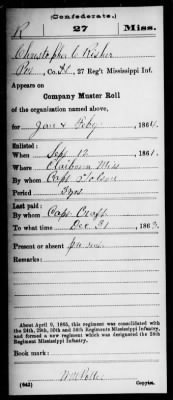 (Confederate.)
R 27 Miss.
Christopher C Risher
Pvt, Co. H, 27 Reg't Mississippi Inf.
Appears on
Company Muster Roll
of the organization named above,
for Jan & Feby, 1864.
Enlisted:
When Sept 12, 1861.
Where Miss
By whom Capt
Period 3 yrs
Last paid:
By whom Capt
To what time Dec 31, 1863.
Present or absent
Remarks:
About April 9, 1865, this regiment was consolidated with
the 24th, 29th, 30th and 34th Regiments Mississippi Infantry,
and formed a new regiment which was designated the 24th
Regiment Mississippi Infantry.
Book mark:
(642) Copyist.